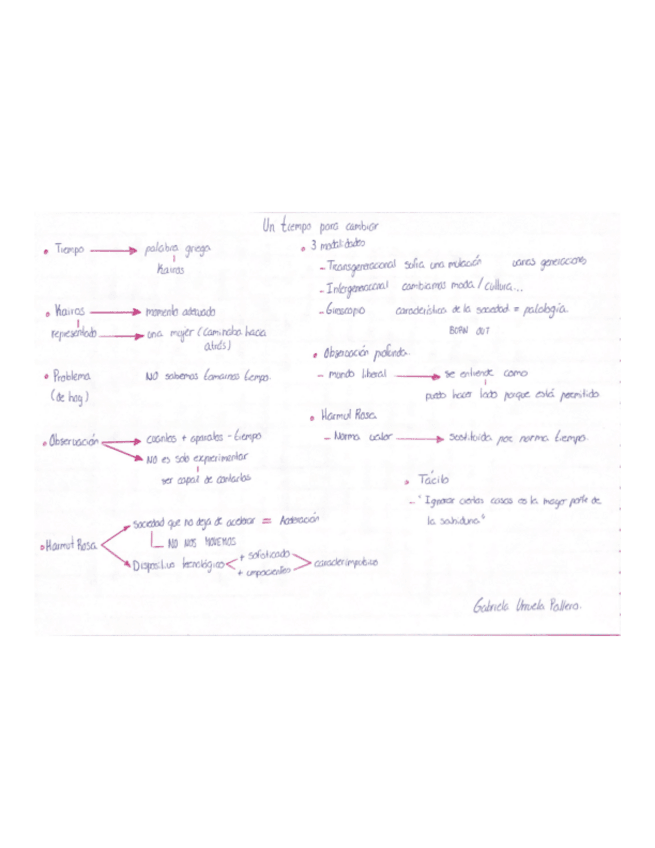 Un tiempo para cambiar
• Tiempo → palabra griega
Kairos
• Kairos → momento adecuado
representado → una mujer (caminaba hacia atrás)
• Problema NO sabemos tomarnos tiempo.
(de hoy)
• Observación → cuantos + aparatos - tiempo
→ NO es solo experimentar
ser capaz de contarlas
• Harmut Rosa → sociedad que no deja de acelerar = Aceleración
NO NOS MOVEMOS
→ Dispositivo tecnológico < + sofisticado
+ impacientes > caracter impulsivo
• 3 modalidades
- Transgeneracional sufria una mutación varias generaciones
- Intergeneracional cambiamos moda / cultura...
- Giroscopio característica de la sociedad = patología
BORN OUT
• Observación profunda
- mundo liberal → se entiende como
puedo hacer todo porque está permitido
• Harmut Rosa
- Norma valor → sustituida por norma tiempo
• Tácito
- "Ignorar ciertas cosas es la mayor parte de
la sabiduria"
Gabriela